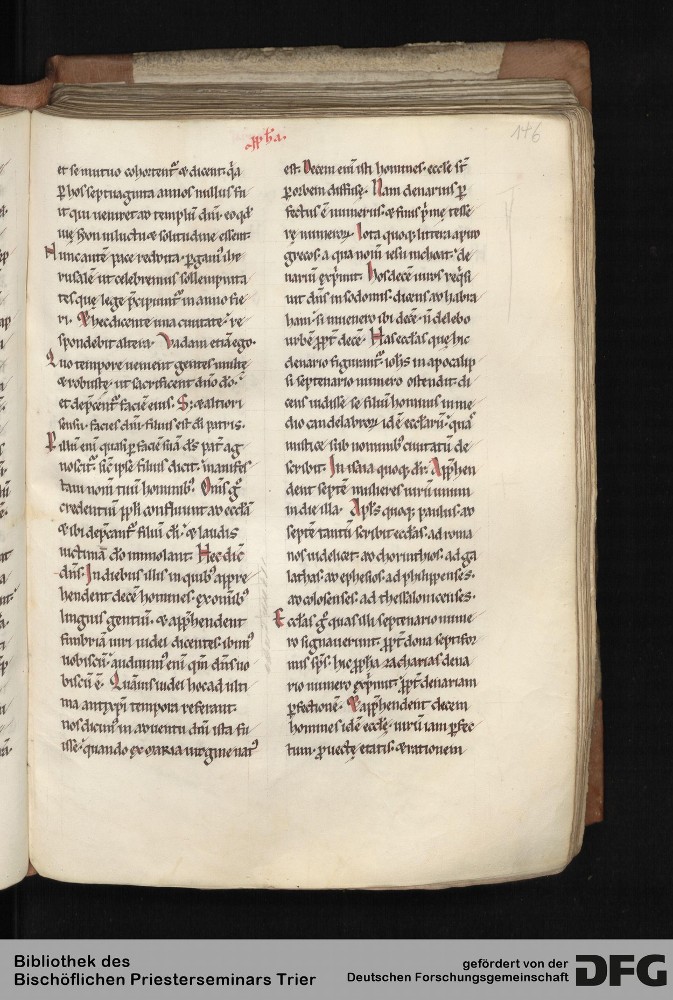 ꝓph̄a.
146
et se mutuo cohortent᷑ ⁊ dicent· q̇a
ꝑ hos septuaginta annos nullus fu
it qui veniret ad templū dn̄i· eo qd̓
mons syon in luctu ⁊ solitudine essent·
Nunc autē pace reddita· ꝑgam᷒ ihe
rusalē ut celebremus sollempnita
tes que lege p̄cipiunt᷑ in anno fie
ri· Et hec dicente una ciuitate· re
spondebit altera· Vadam etiā ego·
Quo tempore uenient gentes multe
⁊ robuste· ut sacrificent dn̄o dō·
et dep̄cent᷑ faciē eius· S; ⁊ altiori
sensu· facies dn̄i filius est dī patris·
Per illū eni quasi ꝑ faciē suā d̄s pat̄ ag
noscit᷑· sic̄ ipse filius dicit· manifes
taui nom̄ tuū hominib᷒· Om̄s gͦ
credentiū ppl̄i confluunt ad eccłā
⁊ ibi dep̄cant᷑ filiū dī· ⁊ laudis
uictimā dō immolant· Hec dic̄
dn̄s· In diebus illis in quib᷒ appre
hendent decē homines· ex om̄ib᷒
linguis gentiū· ⁊ app̄hendent
fimbriā uiri iudei dicentes· ibim᷒
uobiscū· audiuim᷒ eni qm̄ dn̄s uo
biscū ē· Quāuis iudei hoc ad ulti
ma antixp̄i tempora referant·
nos dicim᷒ in aduentu dn̄i ista fu
isse· quando ex maria uirgine nat᷒
est· Decem eni isti homines· eccłe st̄
ꝑ orbem diffuse· Nam denarius ꝑ
fectus ē numerus· ⁊ finis p̄me tesse
re numeroꝝ· Iota quoq; littera apud
grecos· a qua nom̄ iesu inchoat· de
nariū exp̄mit· Hos decē uiros reqͥsi
uit dn̄s in sodomis· dicens ad habra
ham· si inuenero ibi decē· n̄ delebo
urbē ꝓpt̄ decē· Has eccłas que hic
denario figurant᷑· ioħs in apocalip
si septenario numero ostendit· di
cens uidisse se filiū hominis in me
dio candelabroꝝ id ē eccłarū· quas
mistice sub nominib᷒ ciuitatū de
scribit· In isaia quoq; dr̄· App̄hen
dent septē mulieres uirū unum
in die illa· Apl̄s quoq; paulus· ad
septē tantū scribit eccłas· ad roma
nos uidelicet· ad chorinthios· ad ga
lathas· ad ephesios· ad philippenses·
ad colosenses· ad thessalonicenses·
Eccłas gͦ quas illi septenario nume
ro signauerunt· ꝓpt̄ dona septifor
mis sp̄s· hic ꝓph̄a zacharias dena
rio numero exp̄mit· ꝓpt̄ denariam
ꝑfectionē· Et app̄hendent decem
homines id ē eccłe· uirū iam ꝑfec
tum· ꝓuecte etatis· ⁊ rationem
Bibliothek des
Bischöflichen Priesterseminars Trier
gefördert von der
Deutschen Forschungsgemeinschaft
DFG